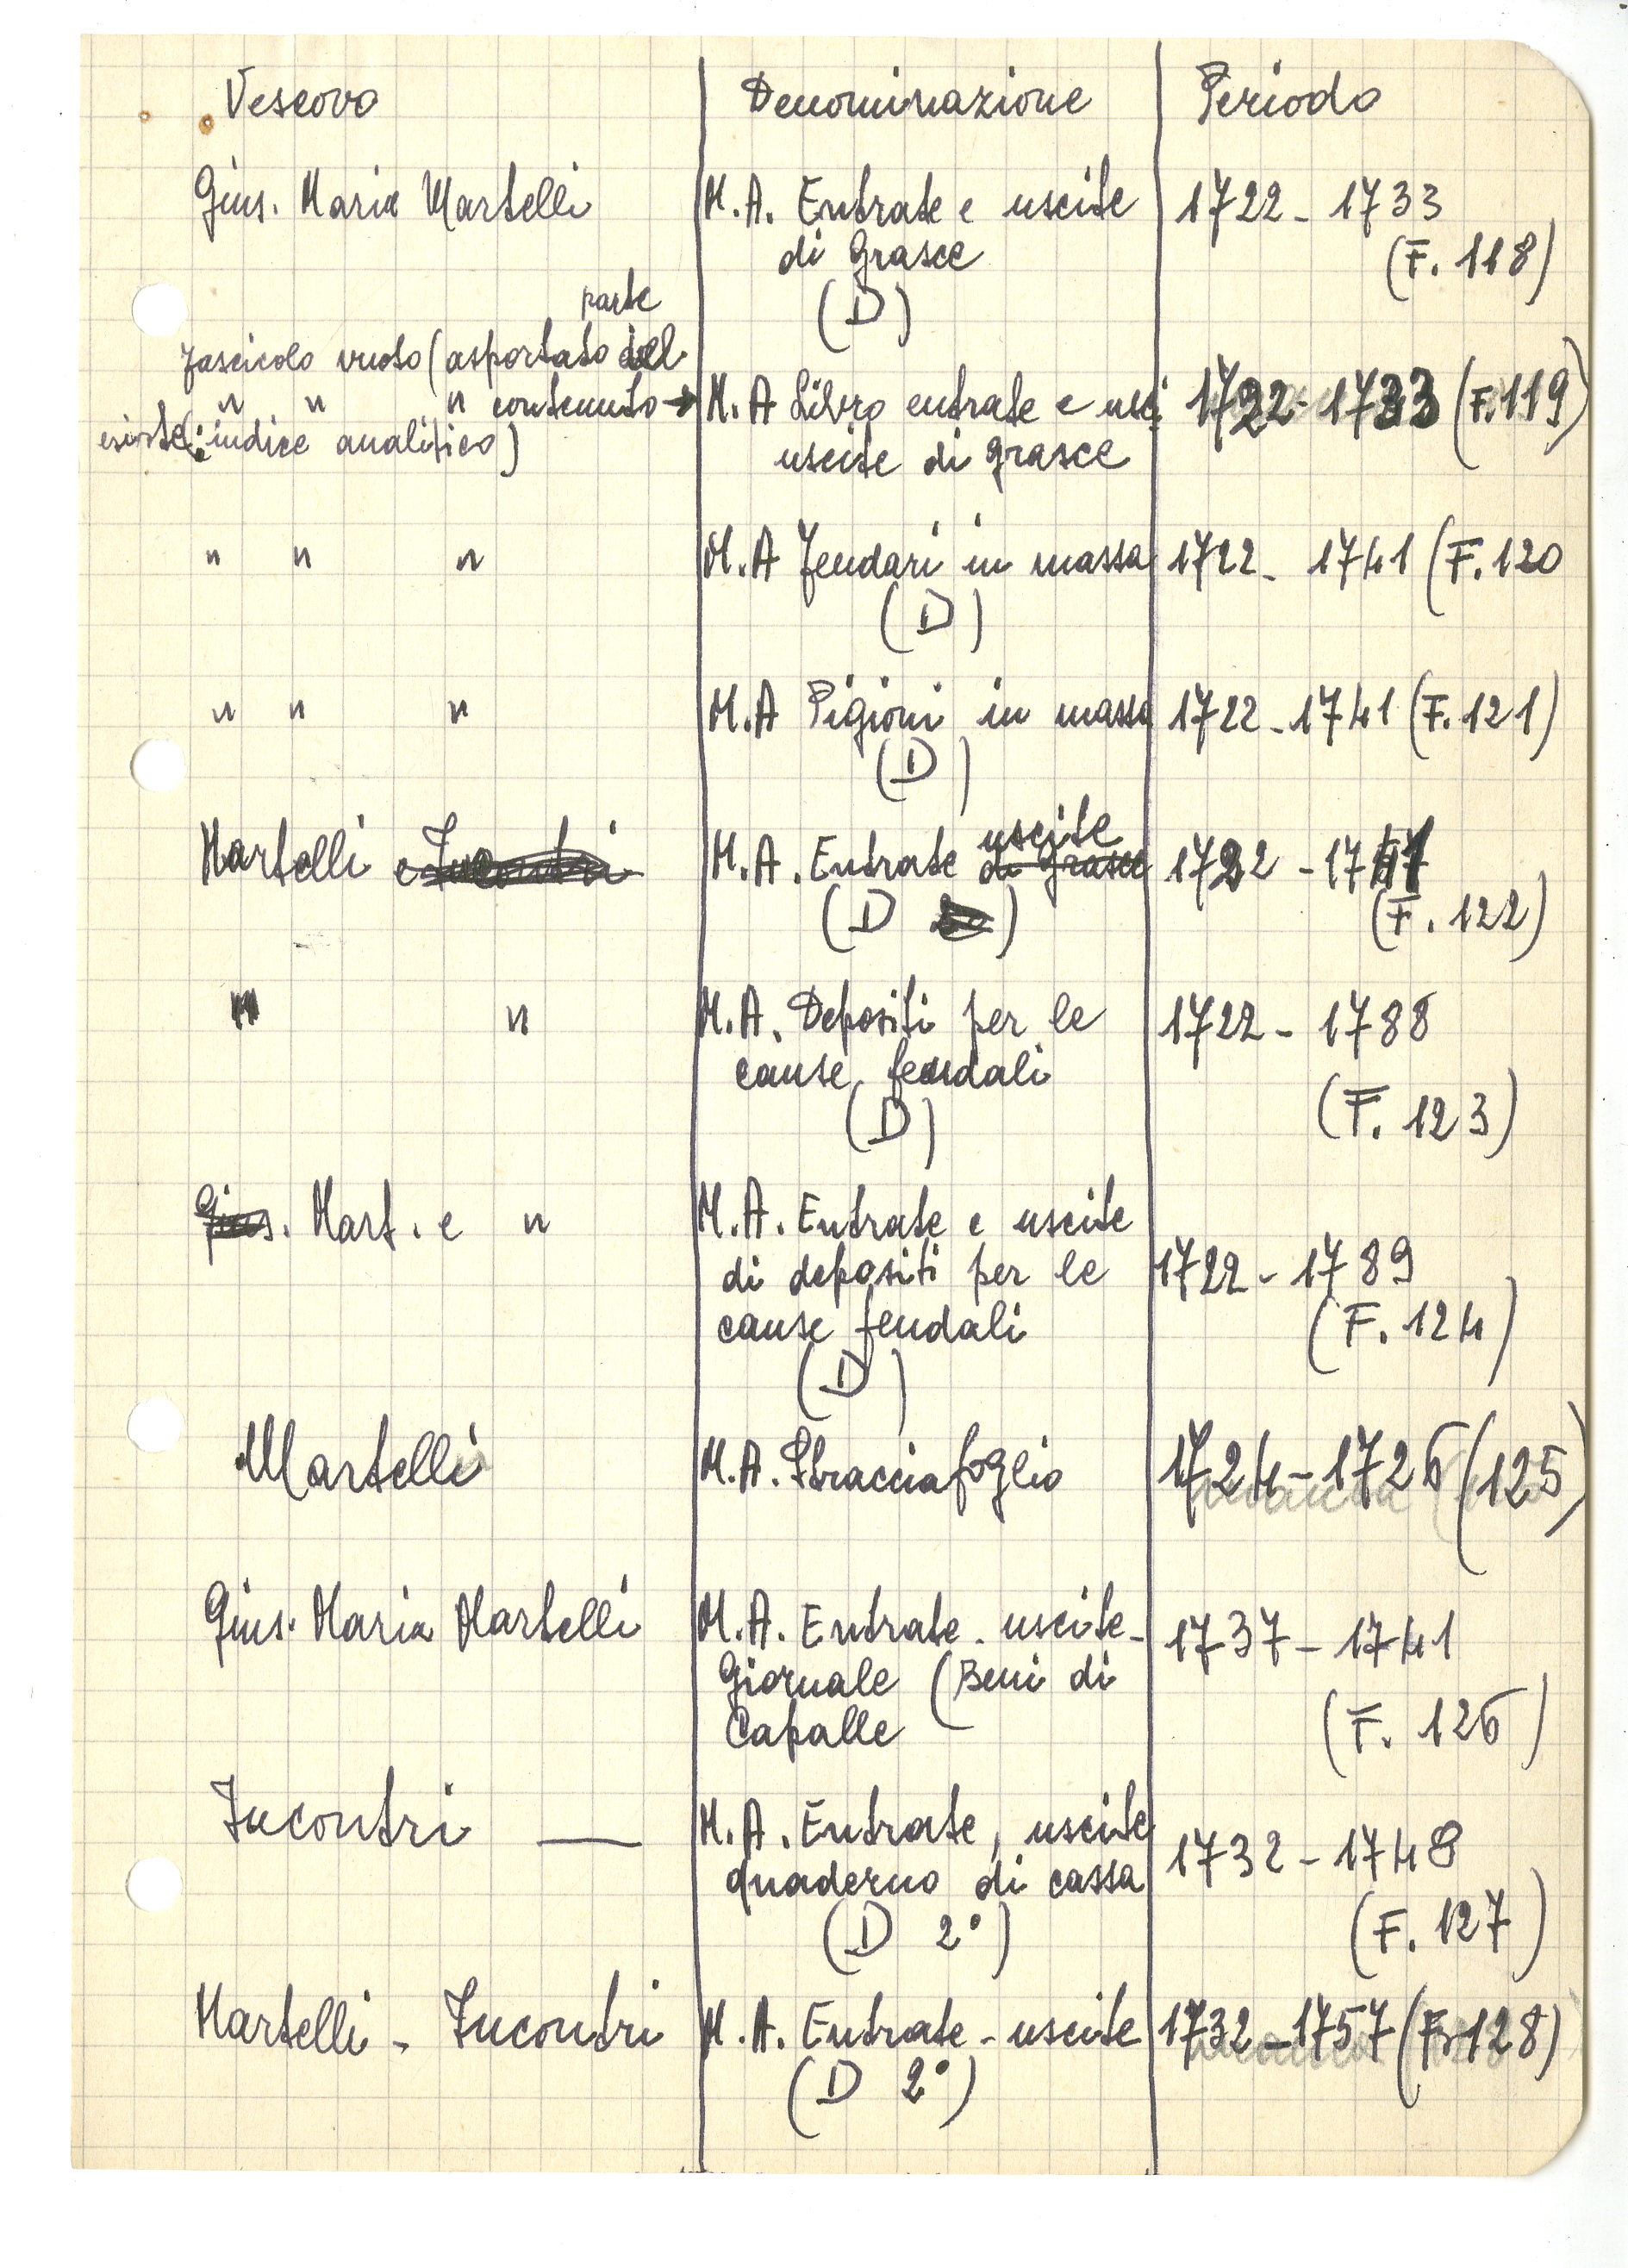 Vescovo Denominazione Periodo
Gius. Maria Martelli M.A. Entrate e uscite 1722 - 1733
di grasce (F. 118)
(D)
parte
fascicolo vuoto (asportato del
" " " contenuto → M.A Libro entrate e usci 1722 - 1733 (F. 119)
esiste: indice analitico) uscite di grasce
" " " M.A Feudari in massa 1722 - 1741 (F. 120
(D)
" " " M.A Pigioni in massa 1722 - 1741 (F. 121)
(D)
uscite
Martelli e Incontri M.A. Entrate di grasce 1722 - 1741
(D ) (F. 122)
" " M.A. Depositi per le 1722 - 1788
cause feudali
(D) (F. 123)
Gius. Mart. e " M.A. Entrate e uscite
di depositi per le 1722 - 1789
cause feudali (F. 124)
(D)
Martelli M.A. Stracciafoglio 1724 - 1726 (125)
Gius. Maria Martelli M.A. Entrate - uscite - 1737 - 1741
Giornale (Beni di
Capalle (F. 126)
Incontri — M.A. Entrate, uscite 1732 - 1748
quaderno di cassa
(D 2°) (F. 127)
Martelli - Incontri M.A. Entrate - uscite 1732 - 1757 (F. 128)
(D 2°)